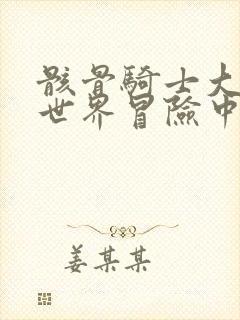 骸骨騎士大
世界冒險中
姜某某